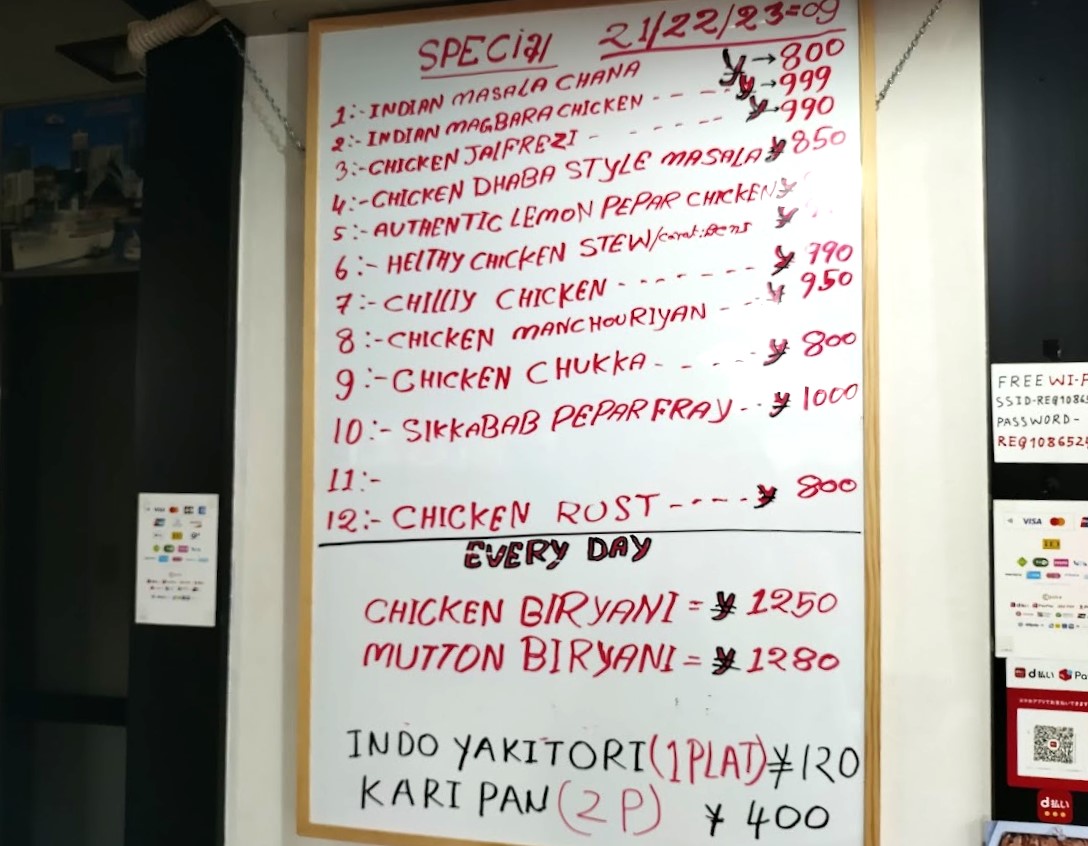 SPECIAL 21/22/23=09
1:- INDIAN MASALA CHANA ¥→800
2:- INDIAN MAGBARA CHICKEN - - - - ¥→999
3:- CHICKEN JALFREZI - - - - - ¥→990
4:- CHICKEN DHABA STYLE MASALA ¥850
5:- AUTHENTIC LEMON PEPAR CHICKEN ¥
6:- HELTHY CHICKEN STEW/ ¥
7:- CHILLIY CHICKEN - - - - - - - ¥ 990
8:- CHICKEN MANCHOURIYAN - - - ¥ 950
9:- CHICKEN CHUKKA - - - - - - ¥ 800
10:- SIKKABAB PEPAR FRAY - - ¥ 1000
11:-
12:- CHICKEN ROST - - - - - ¥ 800
EVERY DAY
CHICKEN BIRYANI = ¥ 1250
MUTTON BIRYANI = ¥ 1280
INDO YAKITORI (1PLAT) ¥120
KARI PAN (2 P) ¥ 400
FREE WI-F
SSID-REQ1086
PASSWORD-
REQ1086524
VISA
VISA
d払い Pa
d払い